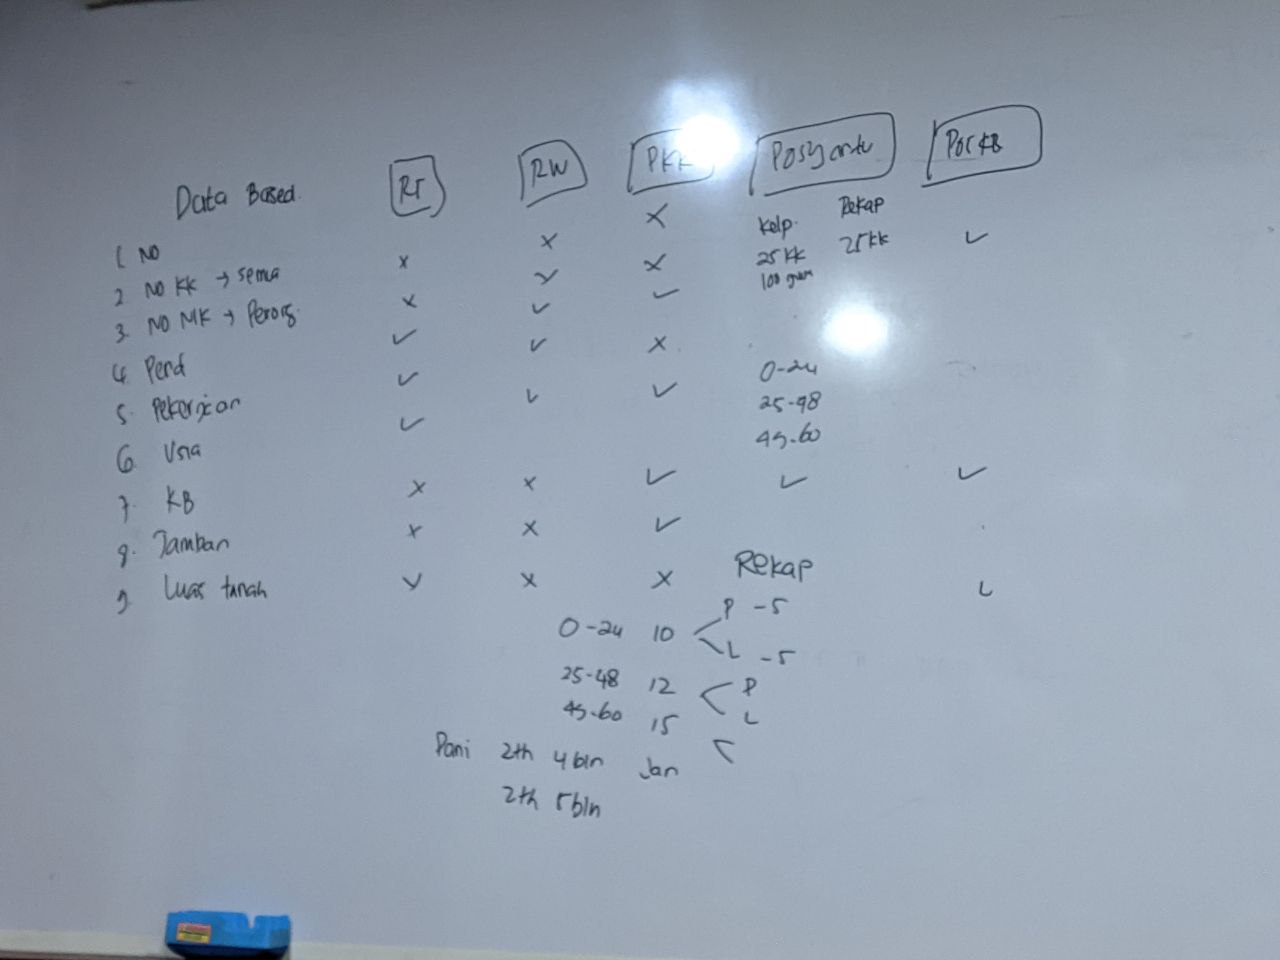 Data Based. RT RW PKK Posyantu Pos KB
1. NO x x x Kelp. Rekap
2. NO KK → semua x x x 25 KK 25 KK ✓
3. NO NIK → Perorg. ✓ ✓ ✓ 100
4. Pend ✓ ✓ x 0-24
5. Pekerjaan ✓ ✓ ✓ 25-48
6. Usia 49-60
7. KB x x ✓ ✓ ✓
8. Jamban x x ✓
9. Luas tanah ✓ x x ✓
Rekap
0-24 10 P -5
L -5
25-48 12 P
49-60 15 L
Dani 2th 4 bln Jan
2th 5 bln